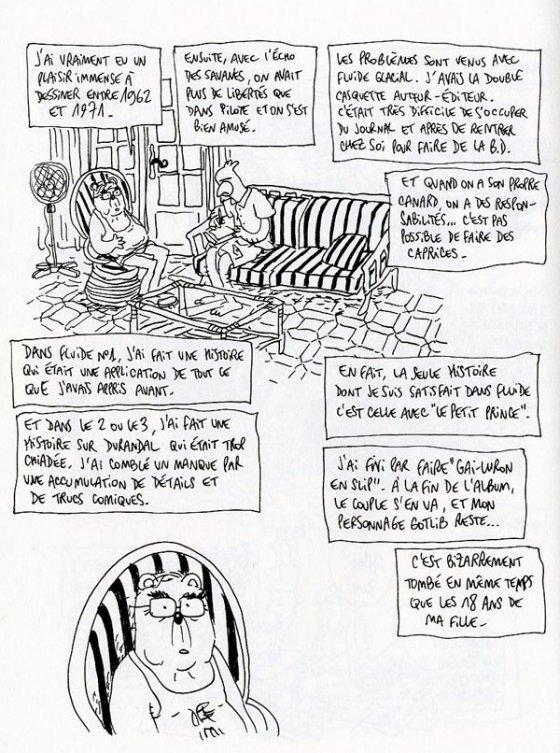 J'AI VRAIMENT EU UN
PLAISIR IMMENSE À
DESSINER ENTRE 1962
ET 1971.
ENSUITE, AVEC L'ÉCHO
DES SAVANES, ON AVAIT
PLUS DE LIBERTÉS QUE
DANS PILOTE ET ON S'EST
BIEN AMUSÉ.
LES PROBLÈMES SONT VENUS AVEC
FLUIDE GLACIAL. J'AVAIS LA DOUBLE
CASQUETTE AUTEUR-ÉDITEUR.
C'ÉTAIT TRÈS DIFFICILE DE S'OCCUPER
DU JOURNAL ET APRÈS DE RENTRER
CHEZ SOI POUR FAIRE DE LA B.D.
ET QUAND ON A SON PROPRE
CANARD, ON A DES RESPON-
SABILITÉS... C'EST PAS
POSSIBLE DE FAIRE DES
CAPRICES.
DANS FLUIDE N°1, J'AI FAIT UNE HISTOIRE
QUI ÉTAIT UNE APPLICATION DE TOUT CE
QUE J'AVAIS APPRIS AVANT.
ET DANS LE 2 OU LE 3, J'AI FAIT UNE
HISTOIRE SUR DURANDAL QUI ÉTAIT TROP
CHIADÉE. J'AI COMBLÉ UN MANQUE PAR
UNE ACCUMULATION DE DÉTAILS ET
DE TRUCS COMIQUES.
EN FAIT, LA SEULE HISTOIRE
DONT JE SUIS SATISFAIT DANS FLUIDE
C'EST CELLE AVEC "LE PETIT PRINCE".
J'AI FINI PAR FAIRE "GAI-LURON
EN SLIP". À LA FIN DE L'ALBUM,
LE COUPLE S'EN VA, ET MON
PERSONNAGE GOTLIB RESTE...
C'EST BIZARREMENT
TOMBÉ EN MÊME TEMPS
QUE LES 18 ANS DE
MA FILLE.